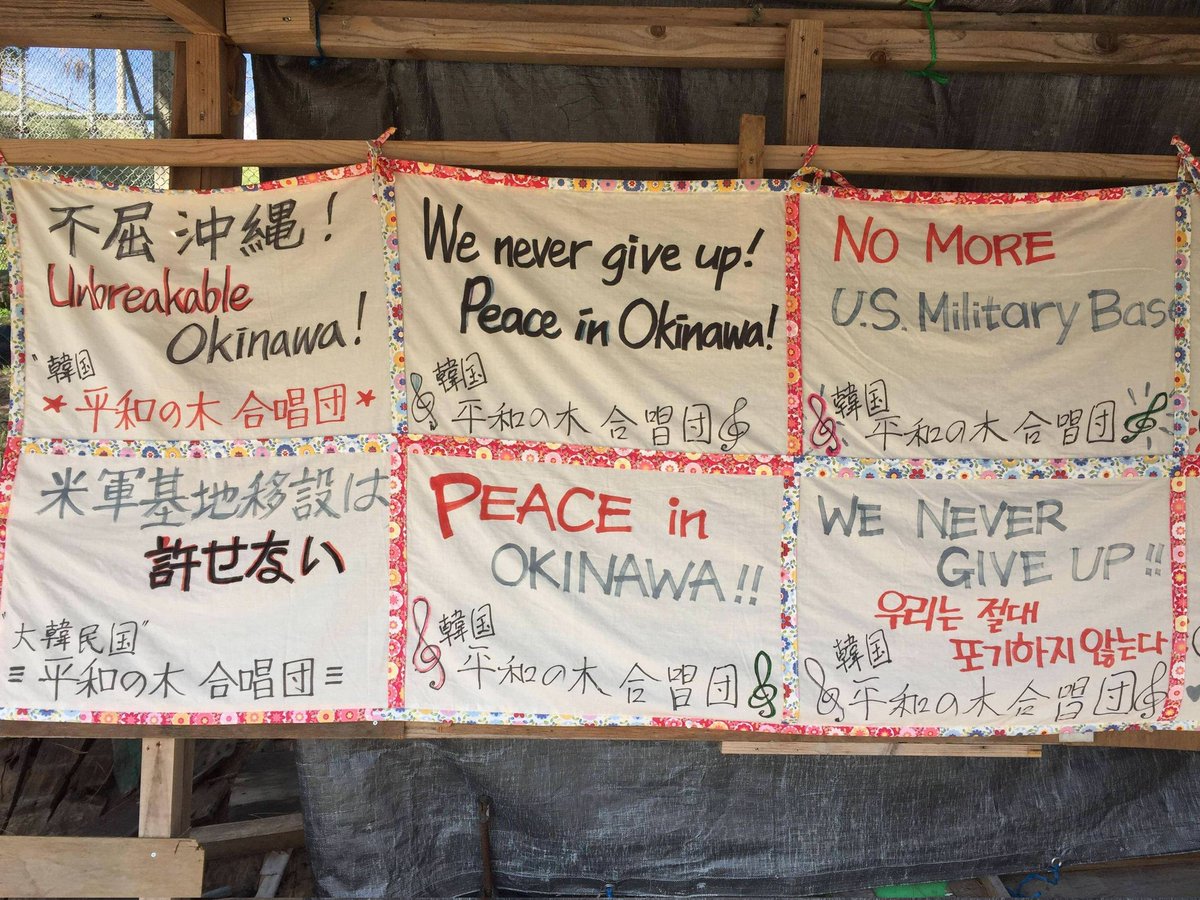 不屈 沖縄!
Unbreakable
Okinawa!
"韓国
★平和の木 合唱団★
We never give up!
Peace in Okinawa!
韓国
平和の木 合唱団
NO MORE
U.S. Military Base
韓国
平和の木 合唱団
米軍基地移設は
許せない
"大韓民国"
平和の木 合唱団
PEACE in
OKINAWA!!
韓国
平和の木 合唱団
WE NEVER
GIVE UP!!
우리는 절대
포기하지 않는다
韓国
平和の木 合唱団